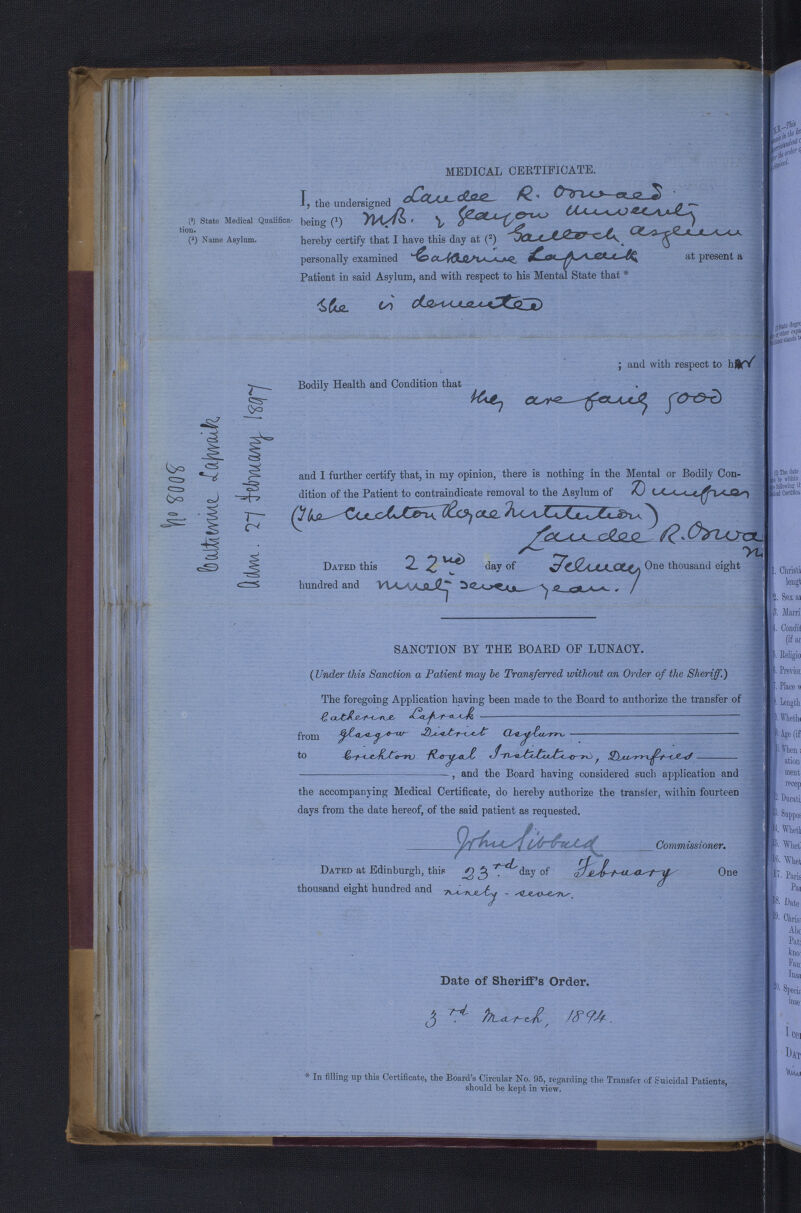 MEDICAL CERTIFICATE.
I, the undersigned Landel R. Oswald
(¹) State Medical Qualifica-
tion.
(²) Name Asylum.
being (¹) M.B. of Glasgow University
hereby certify that I have this day at (²) Gartloch Asylum
personally examined Catherine Lapraik at present a
Patient in said Asylum, and with respect to his Mental State that *
She is demented
; and with respect to her
Bodily Health and Condition that
they are fairly good
and I further certify that, in my opinion, there is nothing in the Mental or Bodily Con-
dition of the Patient to contraindicate removal to the Asylum of Dumfries
(The Crichton Royal Institution)
Landel R. Oswa
DATED this 22nd day of February One thousand eight
hundred and ninety seven years.
No 8008
Catherine Lapraik
Adm. 27 February 1897
SANCTION BY THE BOARD OF LUNACY.
(Under this Sanction a Patient may be Transferred without an Order of the Sheriff.)
The foregoing Application having been made to the Board to authorize the transfer of
Catherine Lapraik
from Glasgow District Asylum
to Crichton Royal Institution, Dumfries
, and the Board having considered such application and
the accompanying Medical Certificate, do hereby authorize the transfer, within fourteen
days from the date hereof, of the said patient as requested.
John Sibbald Commissioner.
DATED at Edinburgh, this 23rd day of February One
thousand eight hundred and ninety-seven.
Date of Sheriff's Order.
3rd March, 1894.
* In filling up this Certificate, the Board's Circular No. 95, regarding the Transfer of Suicidal Patients,
should be kept in view.